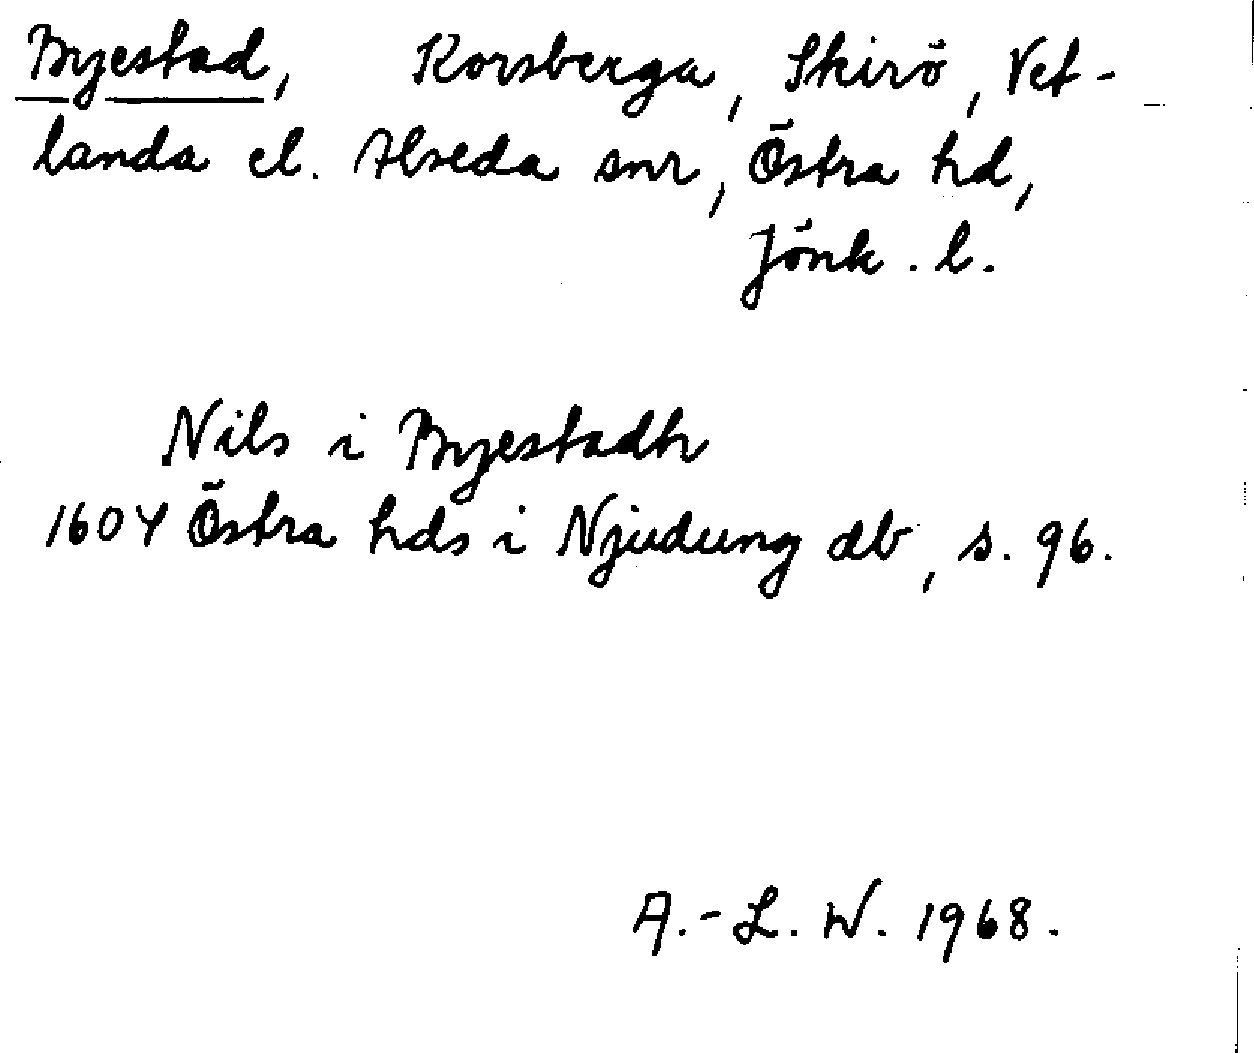 Byestad, Korsberga, Skirö, Vet-
landa el. Alseda snr, Östra hd,
Jönk. l.
Nils i Byestadh
1604 Östra hds i Njudung db, s. 96.
A.-L. W. 1968.